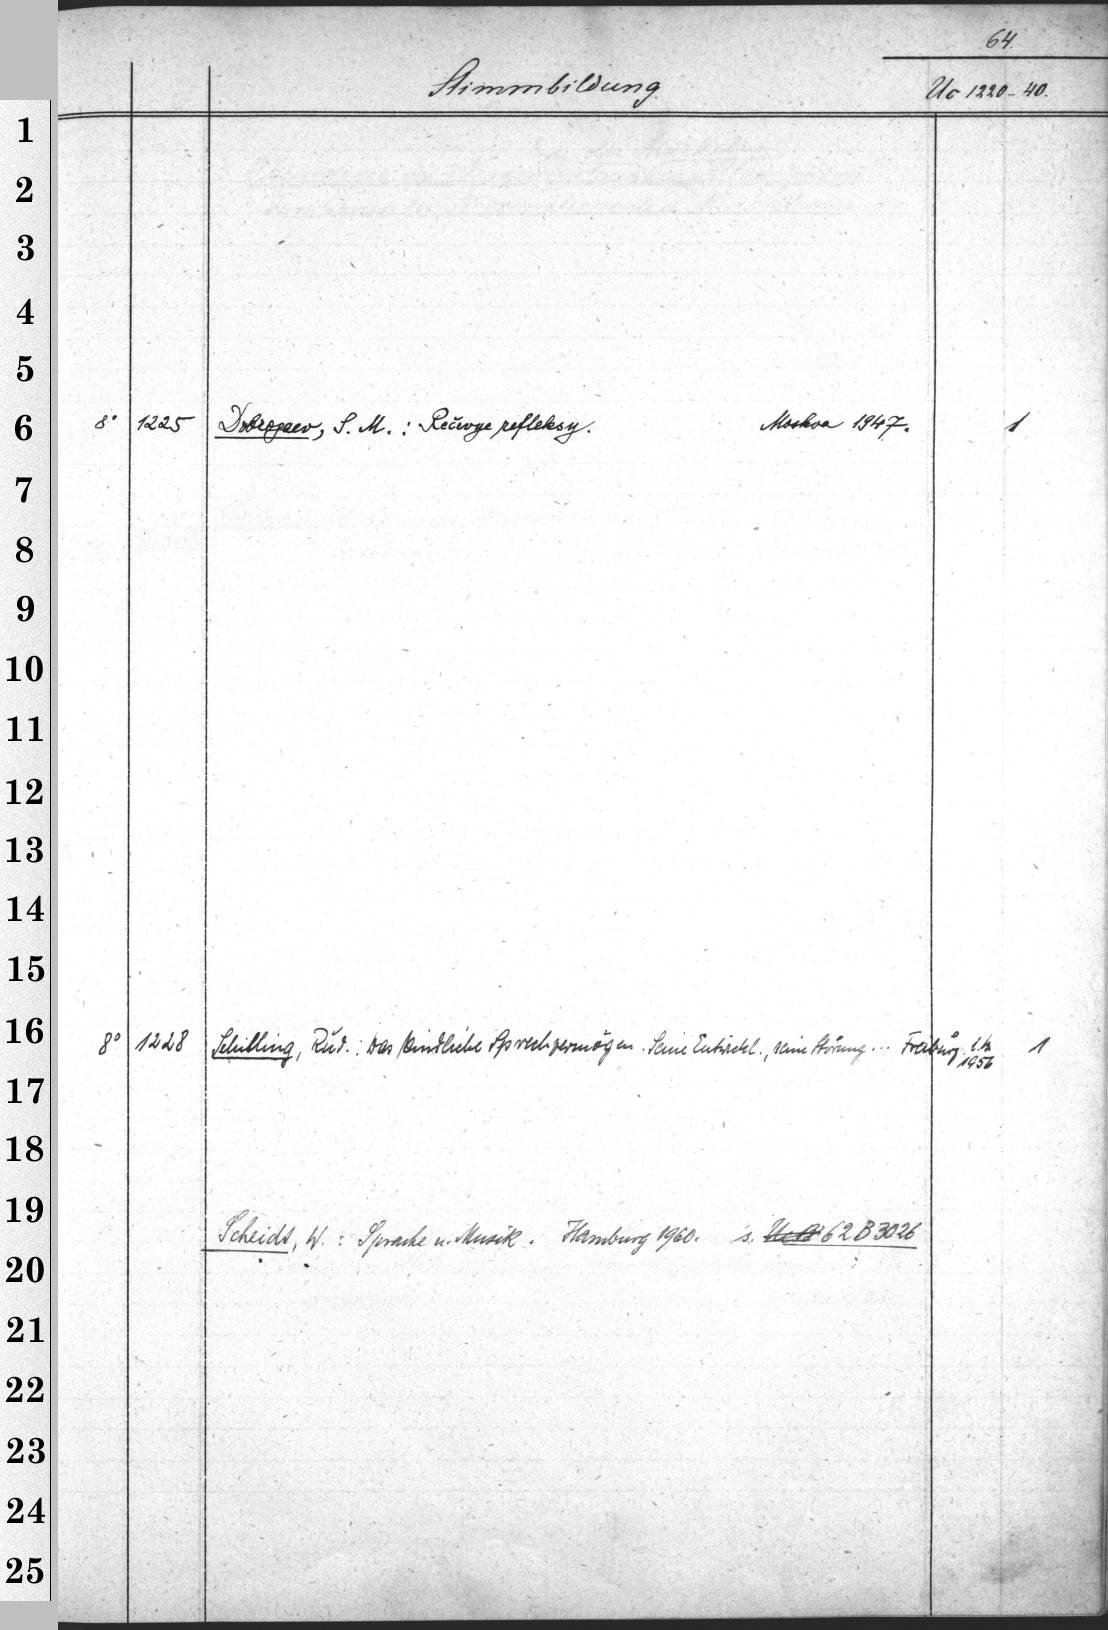 64.
Stimmbildung
Uc 1220-40.
1
2
3
4
5
6
8° 1225 Dobrogaev, S. M.: Rečevye refleksy. Moskva 1947. 1
7
8
9
10
11
12
13
14
15
16
8° 1228 Schilling, Rud.: Das kindliche Sprechvermögen. Seine Entwickl., seine Störung... Freiburg i. Br. 1956 1
17
18
19
Scheidt, W.: Sprache u. Musik. Hamburg 1960. s. 62 B 3026
20
21
22
23
24
25